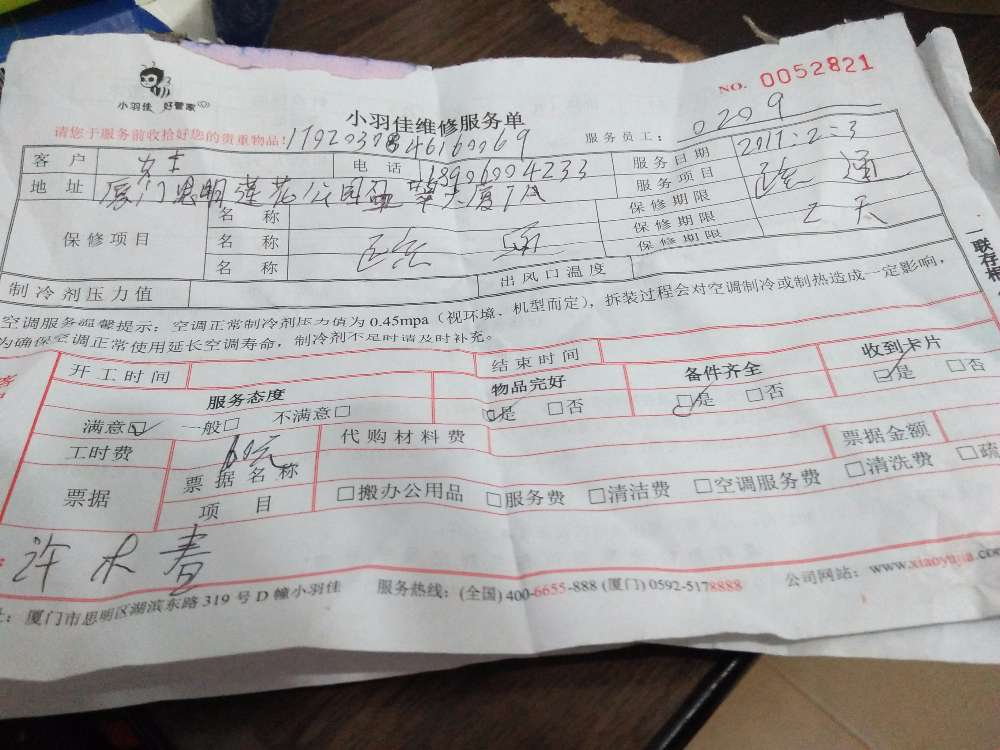 小羽佳 好管家
NO. 0052821
小羽佳维修服务单
请您于服务前收拾好您的贵重物品!
服务员工: 0209
客户 女士 电话 18906004233 服务日期 2017:2:3
地址 厦门思明莲花公园 大厦 服务项目 疏通
保修项目 名称 保修期限
名称 保修期限 2天
名称 保修期限
制冷剂压力值 出风口温度
空调服务温馨提示: 空调正常制冷剂压力值为 0.45mpa (视环境、机型而定), 拆装过程会对空调制冷或制热造成一定影响,
为确保空调正常使用延长空调寿命, 制冷剂不足时请及时补充。
开工时间 结束时间
服务态度 物品完好 备件齐全 收到卡片
满意☑ 一般□ 不满意□ ☑是 □否 ☑是 □否 ☑是 □否
工时费 60元 代购材料费 票据金额
票据 票据名称
项目 □搬办公用品 □服务费 □清洁费 □空调服务费 □清洗费 □疏
许木春
厦门市思明区湖滨东路 319 号 D 幢小羽佳 服务热线: (全国) 400-6655-888 (厦门) 0592-5178888 公司网站: www.xiaoyujia.com
一联存根